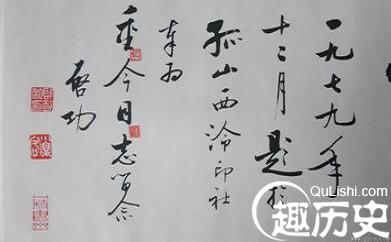 一九七九年
十二月題於
孤山西泠印社
奉为
今同志留念
啓功
QuLishi.com
趣历史